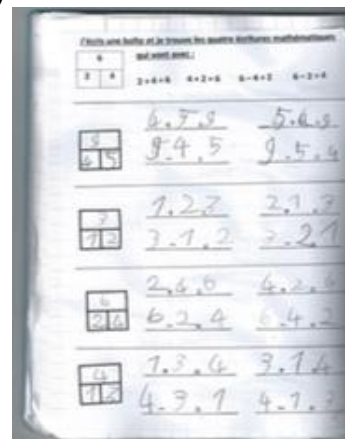 J'écris une boîte et je trouve les quatre écritures mathématiques
qui vont avec :
6
2 4
2+4=6 4+2=6 6-4=2 6-2=4
4.5.9 5.4.9
9
4 5
9.4.5 9.5.4
1.2.3 2.1.3
3
1 2
3.1.2 3.2.1
2.4.6 4.2.6
6
2 4
6.2.4 6.4.2
1.3.4 3.1.4
4
4.3.1 4.1.3